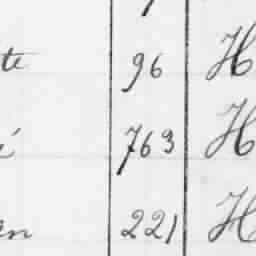 te 96 H
é 763 H
en 221 H